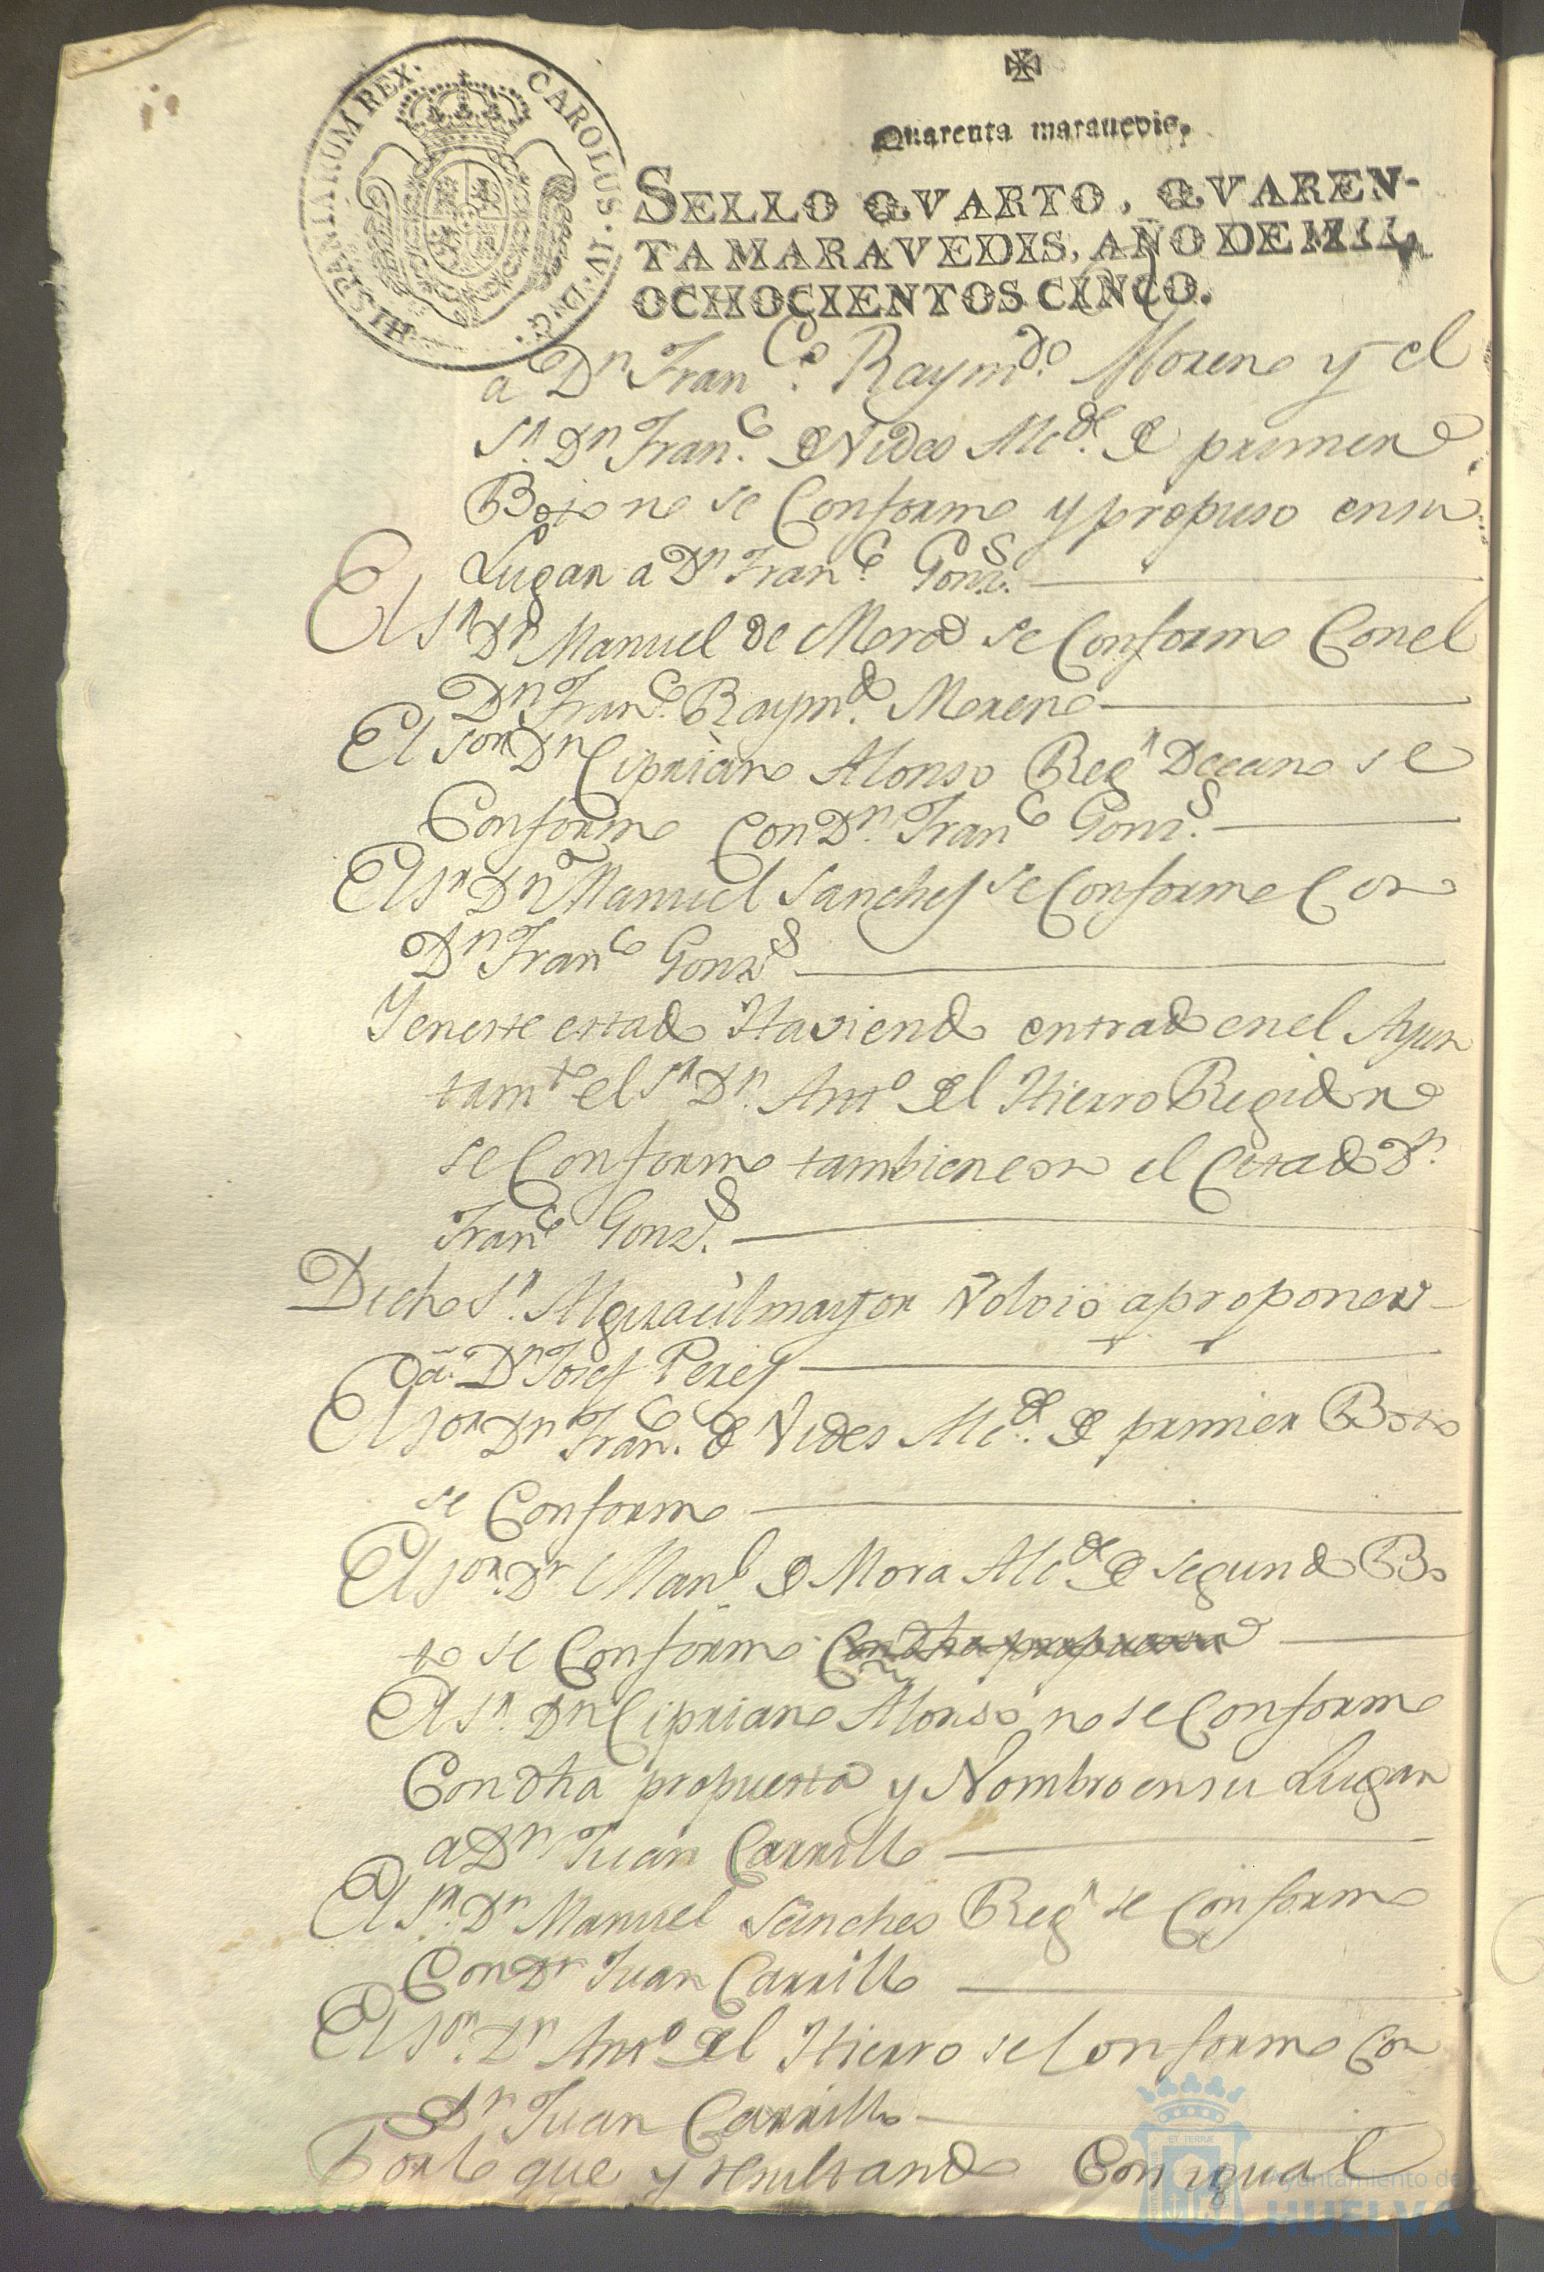 HISPANIARUM REX. CAROLUS. IV. D. G.
Quarenta maravedis.
SELLO QVARTO, QVAREN-
TA MARAVEDIS, AÑO DE MIL
OCHOCIENTOS CINCO.
a Dn Franco. Raymdo. Moreno y el
Sr. Dn Franco. de Vides Alcde. de primero
Boto no se Conformo y propuso en su
Lugar a Dn Franco. Gonzs.
El Sr Dn Manuel de Mora se Conformo Con el
Dn Franco. Raymdo. Moreno
El Sor Dn Cipriano Alonso Regr Decano se
Conformo Con Dn. Franco Gonzs.
El Sr Dn Manuel Sanches se Conformo Con
Dn Franco Gonzs
Y en este estado Haviendo entrado en el Ayun
tamto el Sr Dn. Anto del Hierro Regidor
se Conformo tambien con el Citado Dn.
Franco Gonzs.
Dicho Sr. Alguacil mayor Volvio a proponer
a. Dn Josef Peres
El Sor Dn Franco. de Vides Alcde. de primer Boto
se Conformo
El Sor. Dn Manl de Mora Alcde de segundo Bo
to se Conformo Con dha propuesta
El Sr. Dn Cipriano Alonso no se Conformo
Con dha propuesta y Nombro en su Lugar
a Dn Juan Carrillo
El Sr. Dn Manuel Sanches Regr se Conformo
Con Dn Juan Carrillo
El Sor. Dn Anto del Hierro se Conformo Con
Dn Juan Carrillo
Por lo que y resultando Con igual
Ayuntamiento de
HUELVA